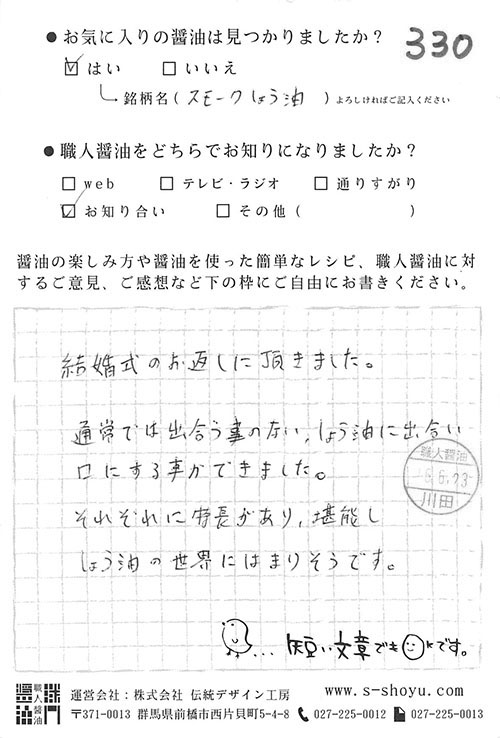 ●お気に入りの醤油は見つかりましたか？ 330
☑はい □いいえ
銘柄名（スモークしょう油）よろしければご記入ください
●職人醤油をどちらでお知りになりましたか？
□web □テレビ・ラジオ □通りすがり
☑お知り合い □その他（ ）
醤油の楽しみ方や醤油を使った簡単なレシピ、職人醤油に対
するご意見、ご感想など下の枠にご自由にお書きください。
結婚式のお返しに頂きました。
通常では出合う事のない、しょう油に出合い
口にする事ができました。
それぞれに特長があり、堪能し
しょう油の世界にはまりそうです。
職人醤油
6.23
川田
...短い文章でもOKです。
職人醤油
運営会社：株式会社 伝統デザイン工房 www.s-shoyu.com
〒371-0013 群馬県前橋市西片貝町5-4-8 027-225-0012 027-225-0013